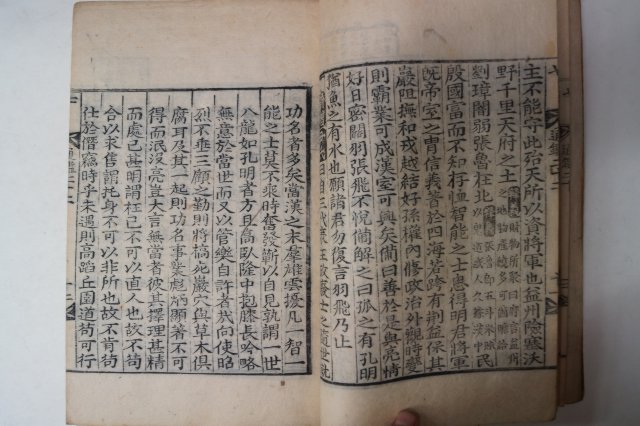 主不能守此殆天所以資將軍也益州險塞沃
野千里天府之土
劉璋闇弱張魯在北
民
殷國富而不知存恤智能之士思得明君將軍
旣帝室之胄信義著於四海若跨有荆益保其
巖阻撫和戎越結好孫權內修政治外觀時變
則霸業可成漢室可興矣備曰善於是與亮情
好日密關羽張飛不悅備解之曰孤之有孔明
猶魚之有水也願諸君勿復言羽飛乃止
曰自三代
功名者多矣當漢之末羣雄雲擾凡一智一
能之士莫不乘時奮發蘄以自見孰謂一世
人龍如孔明者方且高臥隆中抱膝長吟略
無意於當世而又以管樂自許者哉向使昭
烈不垂三顧之勤則將槁死巖穴與草木俱
腐耳及其一起則功名事業彪炳顯著不可
得而泯沒亮豈大言無當者彼其擇理甚精
而處已甚明謂枉己不可以直人也故不苟
合以求售謂托身不可以非所也故不肯苟
仕於僭竊時乎未遇則高蹈丘園道苟可行